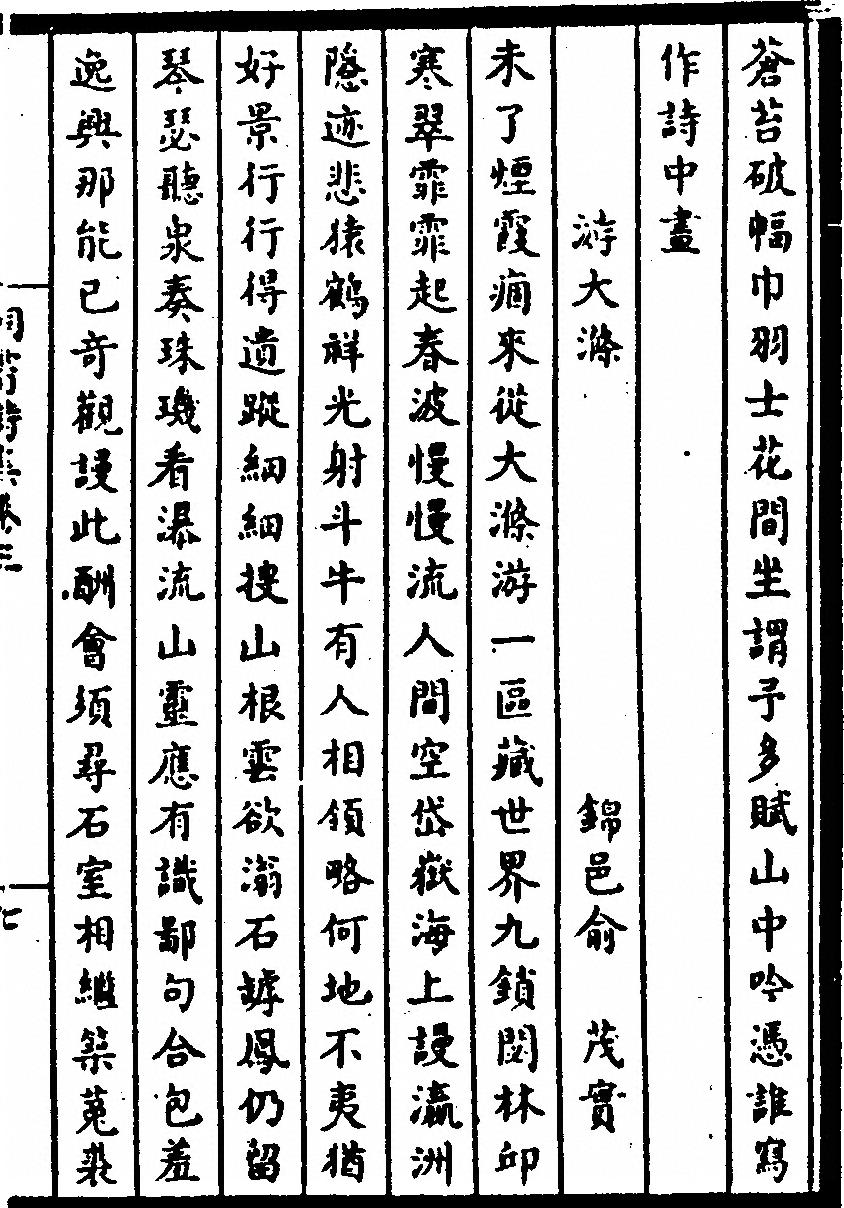 蒼苔破幅巾羽士花間坐謂予多賦山中吟憑誰寫
作詩中畫
游大滌　錦邑俞　茂實
未了煙霞痼來從大滌游一區藏世界九鎖閟林邱
寒翠霏霏起春波慢慢流人間空岱嶽海上謾瀛洲
隱迹悲猿鶴祥光射斗牛有人相領略何地不夷猶
好景行行得遺蹤細細搜山根雲欲滃石罅鳳仍留
琴瑟聽泉奏珠璣看瀑流山靈應有識鄙句合包羞
逸興那能已奇觀謾此酬會須尋石室相繼築菟裘
洞霄詩集卷三
七